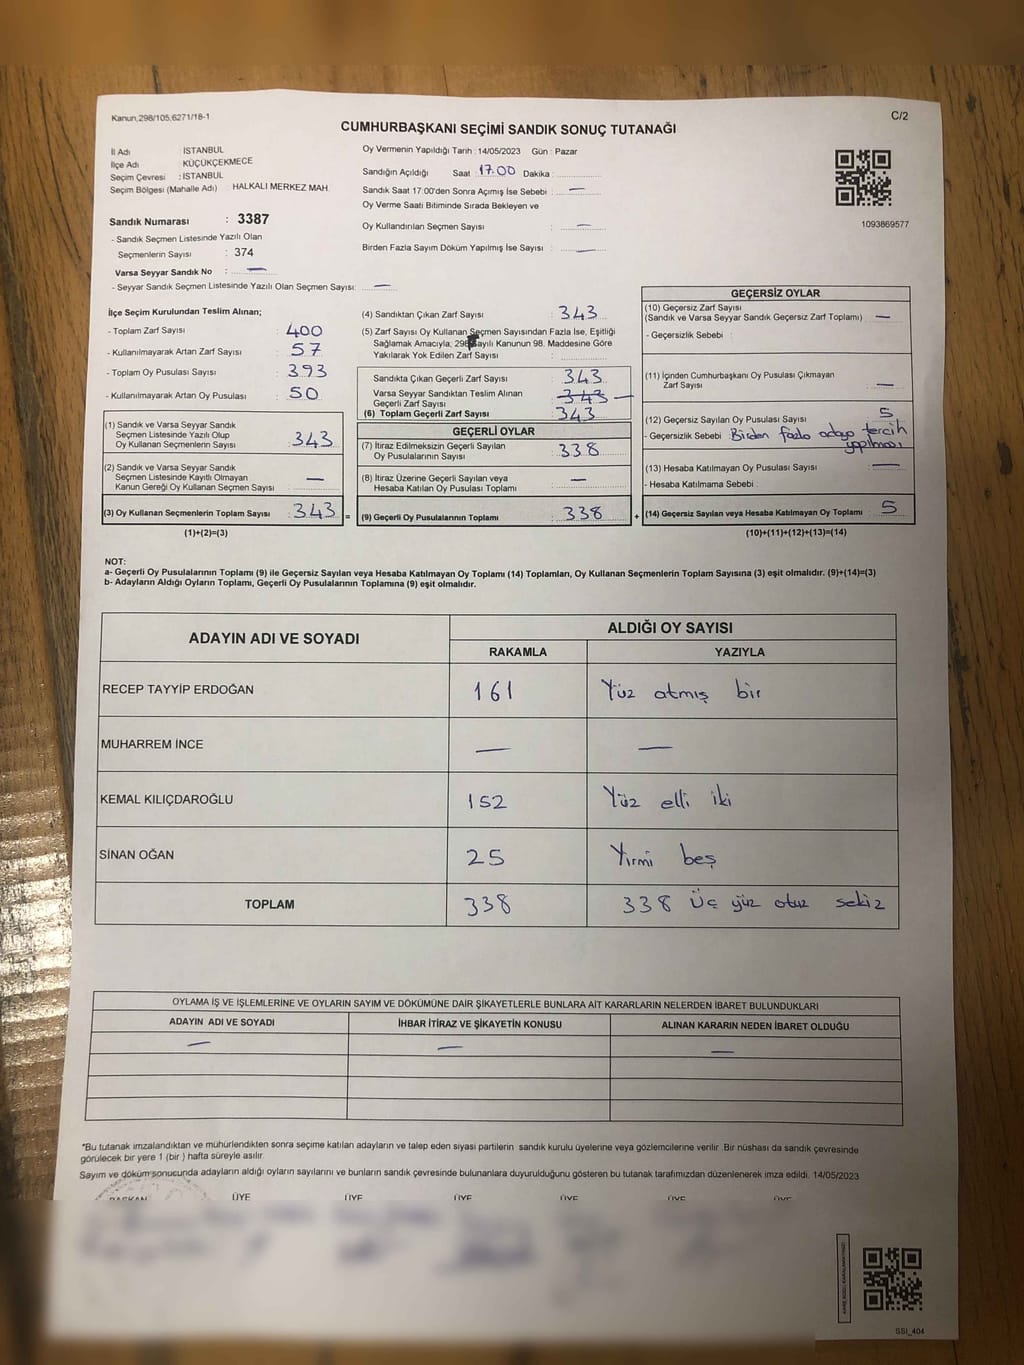 Kanun,298/105,6271/18-1
C/2
CUMHURBAŞKANI SEÇİMİ SANDIK SONUÇ TUTANAĞI
İl Adı İSTANBUL
İlçe Adı KÜÇÜKÇEKMECE
Seçim Çevresi : İSTANBUL
Seçim Bölgesi (Mahalle Adı) : HALKALI MERKEZ MAH.
Sandık Numarası : 3387
- Sandık Seçmen Listesinde Yazılı Olan
Seçmenlerin Sayısı : 374
Varsa Seyyar Sandık No : —
- Seyyar Sandık Seçmen Listesinde Yazılı Olan Seçmen Sayısı: —
Oy Vermenin Yapıldığı Tarih : 14/05/2023 Gün : Pazar
Sandığın Açıldığı Saat : 17.00 Dakika :
Sandık Saat 17:00'den Sonra Açımış İse Sebebi : —
Oy Verme Saati Bitiminde Sırada Bekleyen ve
Oy Kullandırılan Seçmen Sayısı : —
Birden Fazla Sayım Döküm Yapılmış İse Sayısı : —
1093869577
İlçe Seçim Kurulundan Teslim Alınan;
- Toplam Zarf Sayısı : 400
- Kullanılmayarak Artan Zarf Sayısı : 57
- Toplam Oy Pusulası Sayısı : 393
- Kullanılmayarak Artan Oy Pusulası : 50
(1) Sandık ve Varsa Seyyar Sandık
Seçmen Listesinde Yazılı Olup
Oy Kullanan Seçmenlerin Sayısı : 343
(2) Sandık ve Varsa Seyyar Sandık
Seçmen Listesinde Kayıtlı Olmayan
Kanun Gereği Oy Kullanan Seçmen Sayısı : —
(3) Oy Kullanan Seçmenlerin Toplam Sayısı : 343
(1)+(2)=(3)
=
(4) Sandıktan Çıkan Zarf Sayısı : 343
(5) Zarf Sayısı Oy Kullanan Seçmen Sayısından Fazla İse, Eşitliği
Sağlamak Amacıyla; 298 Sayılı Kanunun 98. Maddesine Göre
Yakılarak Yok Edilen Zarf Sayısı :
Sandıkta Çıkan Geçerli Zarf Sayısı : 343
Varsa Seyyar Sandıktan Teslim Alınan
Geçerli Zarf Sayısı : 343 —
(6) Toplam Geçerli Zarf Sayısı : 343
GEÇERLİ OYLAR
(7) İtiraz Edilmeksizin Geçerli Sayılan
Oy Pusulalarının Sayısı : 338
(8) İtiraz Üzerine Geçerli Sayılan veya
Hesaba Katılan Oy Pusulası Toplamı : —
(9) Geçerli Oy Pusulalarının Toplamı : 338
+
GEÇERSİZ OYLAR
(10) Geçersiz Zarf Sayısı
(Sandık ve Varsa Seyyar Sandık Geçersiz Zarf Toplamı) : —
- Geçersizlik Sebebi :
(11) İçinden Cumhurbaşkanı Oy Pusulası Çıkmayan
Zarf Sayısı : —
(12) Geçersiz Sayılan Oy Pusulası Sayısı : 5
- Geçersizlik Sebebi : Birden fazla adaya tercih
yapılması
(13) Hesaba Katılmayan Oy Pusulası Sayısı : —
- Hesaba Katılmama Sebebi :
(14) Geçersiz Sayılan veya Hesaba Katılmayan Oy Toplamı : 5
(10)+(11)+(12)+(13)=(14)
NOT:
a- Geçerli Oy Pusulalarının Toplamı (9) ile Geçersiz Sayılan veya Hesaba Katılmayan Oy Toplamı (14) Toplamları, Oy Kullanan Seçmenlerin Toplam Sayısına (3) eşit olmalıdır. (9)+(14)=(3)
b- Adayların Aldığı Oyların Toplamı, Geçerli Oy Pusulalarının Toplamına (9) eşit olmalıdır.
ADAYIN ADI VE SOYADI
ALDIĞI OY SAYISI
RAKAMLA YAZIYLA
RECEP TAYYİP ERDOĞAN 161 Yüz atmış bir
MUHARREM İNCE — —
KEMAL KILIÇDAROĞLU 152 Yüz elli iki
SİNAN OĞAN 25 Yirmi beş
TOPLAM 338 338 Üç yüz otuz sekiz
OYLAMA İŞ VE İŞLEMLERİNE VE OYLARIN SAYIM VE DÖKÜMÜNE DAİR ŞİKAYETLERLE BUNLARA AİT KARARLARIN NELERDEN İBARET BULUNDUKLARI
ADAYIN ADI VE SOYADI İHBAR İTİRAZ VE ŞİKAYETİN KONUSU ALINAN KARARIN NEDEN İBARET OLDUĞU
— — —
*Bu tutanak imzalandıktan ve mühürlendikten sonra seçime katılan adayların ve talep eden siyasi partilerin sandık kurulu üyelerine veya gözlemcilerine verilir. Bir nüshası da sandık çevresinde
görülecek bir yere 1 (bir ) hafta süreyle asılır.
Sayım ve döküm sonucunda adayların aldığı oyların sayılarını ve bunların sandık çevresinde bulunanlara duyurulduğunu gösteren bu tutanak tarafımızdan düzenlenerek imza edildi. 14/05/2023
BAŞKAN ÜYE ÜYE ÜYE ÜYE ÜYE ÜYE
SSI_404